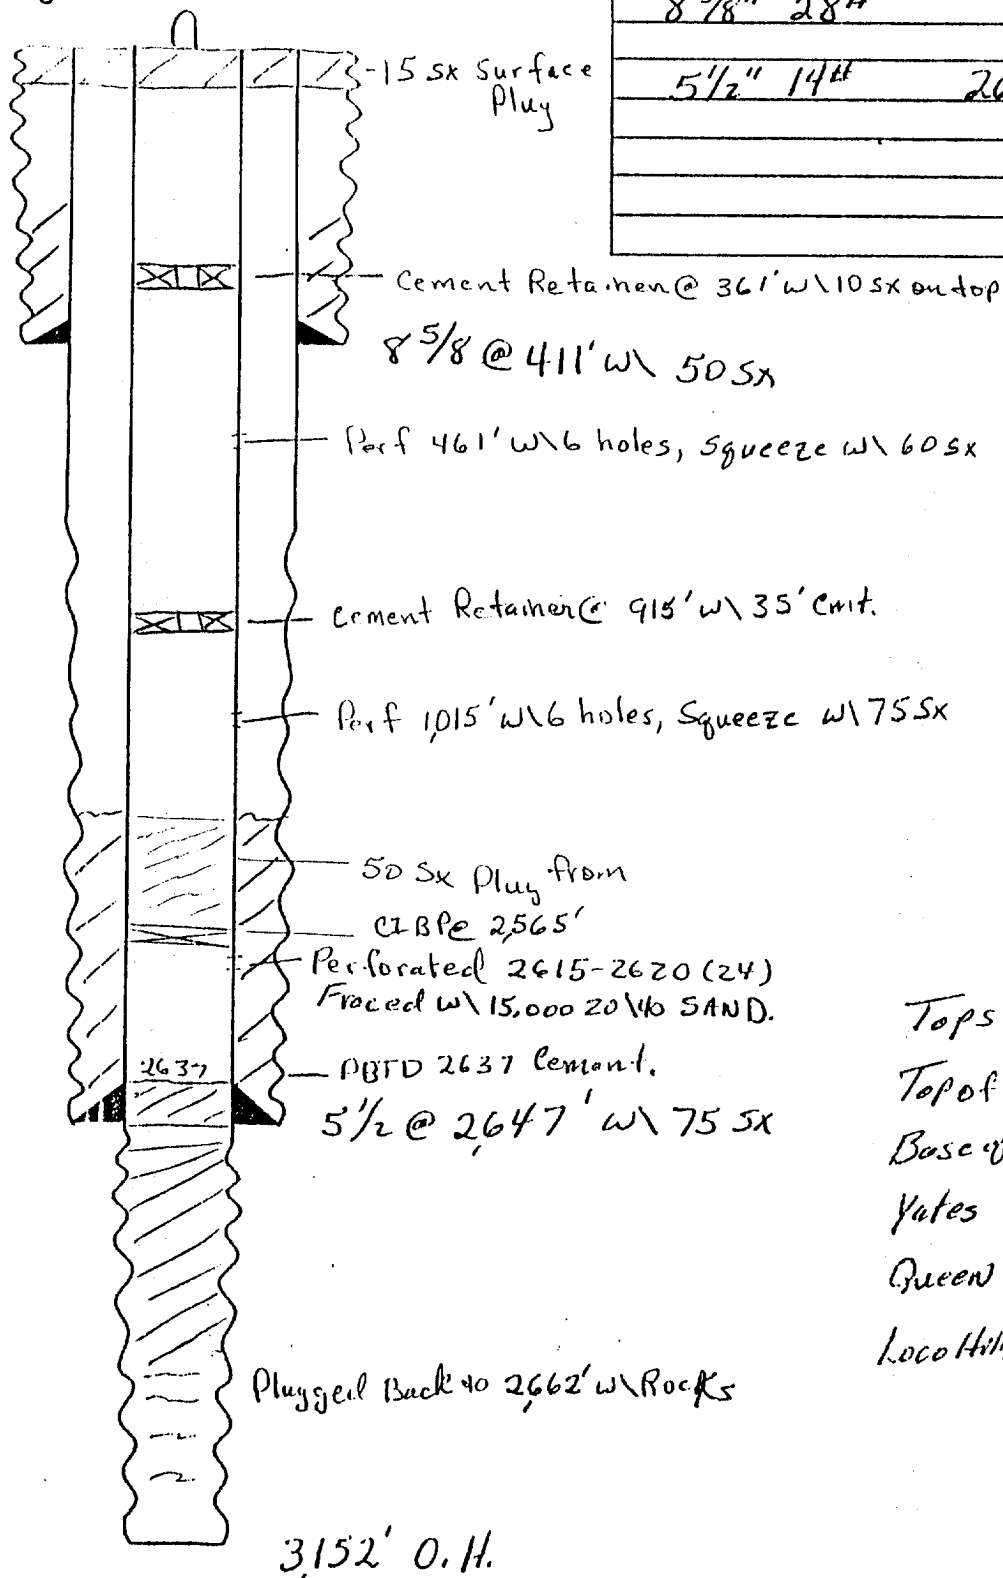 8 5/8" 28#
5 1/2" 14#
15 sx Surface
Plug
Cement Retainer @ 361' w\10 sx on top
8 5/8 @ 411' w\ 50 sx
Perf 461' w\6 holes, Squeeze w\ 60 sx
Cement Retainer @ 915' w\ 35' Cmt.
Perf 1,015' w\6 holes, Squeeze w\ 75 Sx
50 Sx Plug from
CIBP @ 2,565'
Perforated 2615-2620 (24)
Fraced w\ 15,000 20\40 SAND.
2637
PBTD 2637 Cement.
5 1/2 @ 2,647' w\ 75 sx
Tops
Top of
Base of
Yates
Queen
Plugged Back to 2,662' w\ Rocks
3,152' O.H.